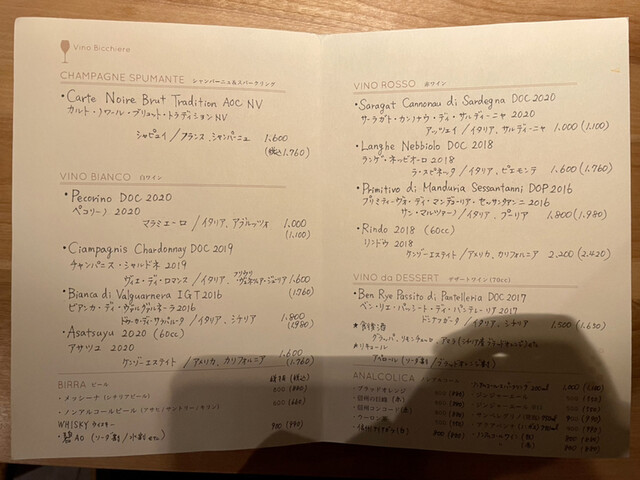 Vino Bicchiere
CHAMPAGNE SPUMANTE シャンパーニュ&スパークリング
・Carte Noire Brut Tradition AOC NV
カルト・ノワール・ブリュット・トラディション NV
シャピュイ / フランス、シャンパーニュ 1.600
(税込1.760)
VINO BIANCO 白ワイン
・Pecorino DOC 2020
ペコリーノ 2020
マラミエーロ / イタリア、アブルッツォ 1.000
(1.100)
・Ciampagnis Chardonnay DOC 2019
チャンパニス・シャルドネ 2019
ヴィエ・ディ・ロマンス / イタリア、フリウリ ヴェネツィア・ジューリア 1.600
(1.760)
・Bianca di Valguarnera IGT 2016
ビアンカ・ディ・ヴァルグァルネーラ 2016
ドゥーカ・ディ・サラパルータ / イタリア、シチリア 1.800
(1.980)
・Asatsuyu 2020 (60cc)
アサツユ 2020
ケンゾーエステイト / アメリカ、カリフォルニア 1.600
(1.760)
BIRRA ビール 税抜(税込)
・メッシーナ (シチリアビール) 800 (880)
・ノンアルコールビール (アサヒ/サントリー/キリン) 600 (660)
WHISKY ウイスキー 900 (990)
・碧AO (ソーダ割/水割 etc)
VINO ROSSO 赤ワイン
・Saragat Cannonau di Sardegna DOC 2020
サーラガト・カンノナウ・ディ・サルディーニャ 2020
アッツェイ / イタリア、サルディーニャ 1.000 (1.100)
・Langhe Nebbiolo DOC 2018
ランゲ・ネッビオーロ 2018
ラ・スピネッタ / イタリア、ピエモンテ 1.600 (1.760)
・Primitivo di Manduria Sessantanni DOP 2016
プリミティーヴォ・ディ・マンデューリア・セッサンタアンニ 2016
サン・マルツァーノ / イタリア、プーリア 1.800 (1.980)
・Rindo 2018 (60cc)
リンドウ 2018
ケンゾーエステイト / アメリカ、カリフォルニア 2.200 (2.420)
VINO da DESSERT デザートワイン (70cc)
・Ben Rye Passito di Pantelleria DOC 2017
ベン・リエ・パッシート・ディ・パンテレーリア 2017
ドンナフガータ / イタリア、シチリア 1.500 (1.650)
★食後酒
グラッパ、リモンチェッロ、アマーロ
★リキュール
アペロール (ソーダ割/
ANALCOLICA ノンアルコール
・ブラッドオレンジ
・信州の白桃
・信州コンコード
・ウーロン茶
・ジンジャーエール
・サンペレグリノ
750ml